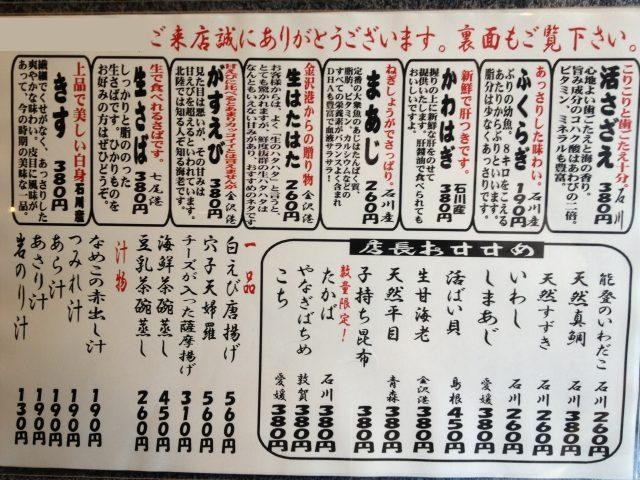 ご来店誠にありがとうございます。裏面もご覧下さい。
こりこりと歯ごたえ十分。
活さざえ
石川
380円
心地よい歯ごたえと海の香り。
旨み成分のコハク酸はあわびの二倍。
ビタミン、ミネラルも豊富
あっさりした味わい。
ふくらぎ
石川産
190円
ぶりの幼魚。8キロをこえる
あたりからぶりといいます。
脂分は少なくあっさりです。
新鮮で肝つきです。
かわはぎ
石川産
380円
握りの上に新鮮な肝をのせて
提供いたします。肝醤油で食べられても
おいしいですよ。
ねぎしょうがでさっぱり。
まあじ
石川産
260円
定番の大衆魚のあじはたんぱく質、
脂肪、ビタミン、カルシウムなどの
すべての栄養素がバランスよく含まれ
DHAも豊富で血液サラサラ!
金沢港からの贈り物
生はたはた
金沢港
260円
お客様からは、よく「生のハタハタ」と言うと、
とても驚かれますが、鮮度抜群の生ハタハタは
なんともいえない旨みがあります。おすすめのネタです。
がすえび
金沢港
380円
見た目は悪いが、その甘みは
甘えびを超えるといわれています。
北陸では知る人ぞ知る海老です。
生で食べれるさばです。
生さば
七尾港
380円
しっとり、脂ののった
生さばです。ひかりもの
お好みの方はぜひどうぞ。
上品で美しい白身
きす
石川産
380円
繊細でくせがなく、あっさりした
爽やかな味わい。皮目に味が
あって、今の時期の美味な一品。
店長おすすめ
能登のいわだこ 石川 260円
天然真鯛 石川 380円
天然すずき 石川 260円
いわし 石川 260円
しまあじ 愛媛 380円
活ばい貝 島根 450円
生甘海老 金沢港 380円
天然平目 青森 380円
子持ち昆布 380円
数量限定!
たかば 石川 380円
やなぎばちめ 敦賀 380円
こち 愛媛 380円
一品
白えび唐揚げ 560円
穴子天婦羅 560円
チーズが入った薩摩揚げ 310円
海鮮茶碗蒸し 450円
豆乳茶碗蒸し 260円
汁物
なめこの赤出し汁 190円
つみれ汁 190円
あら汁 190円
あさり汁 190円
岩のり汁 130円